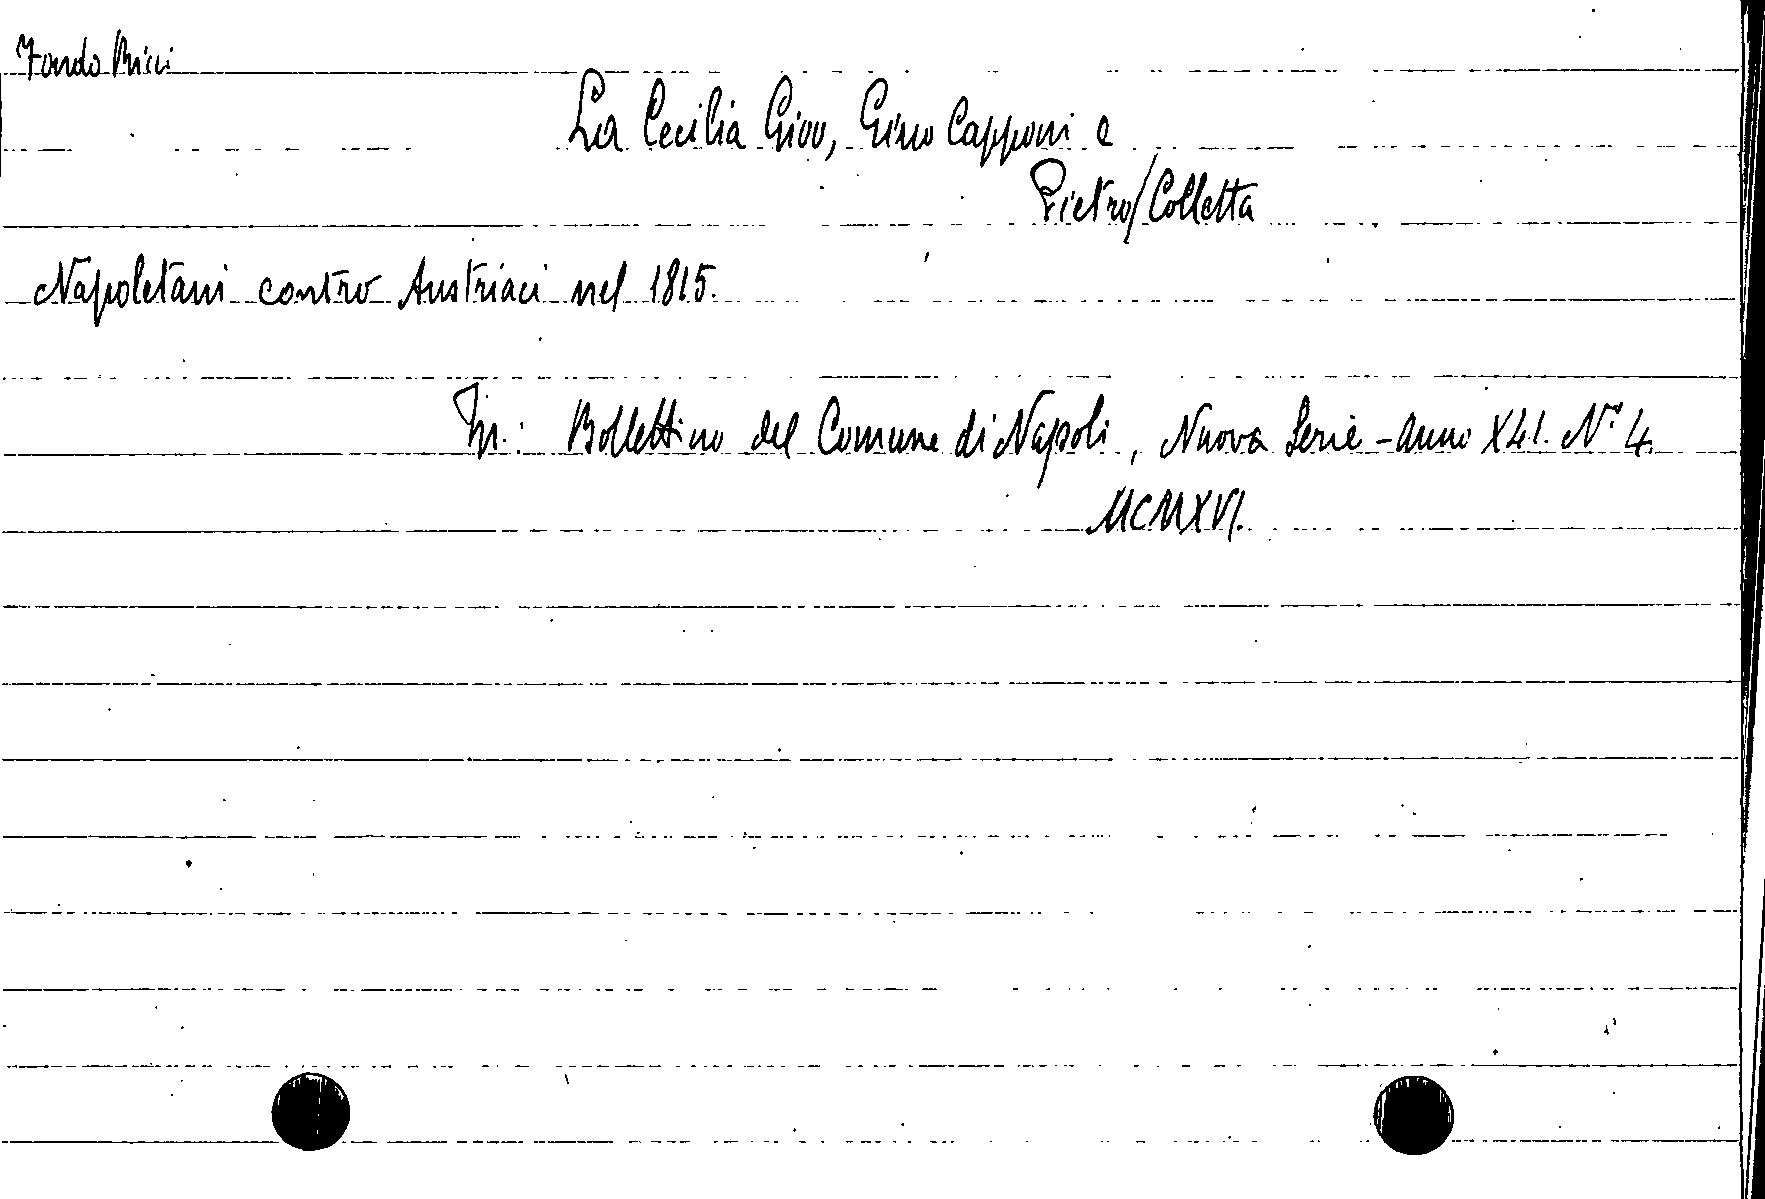 Fondo Ricci
La Cecilia Giov, Gino Capponi e
Pietro/Colletta
Napoletani contro Austriaci nel 1815.
In: Bollettino del Comune di Napoli, Nuova Serie - Anno XLI. N° 4.
MCMXVI.